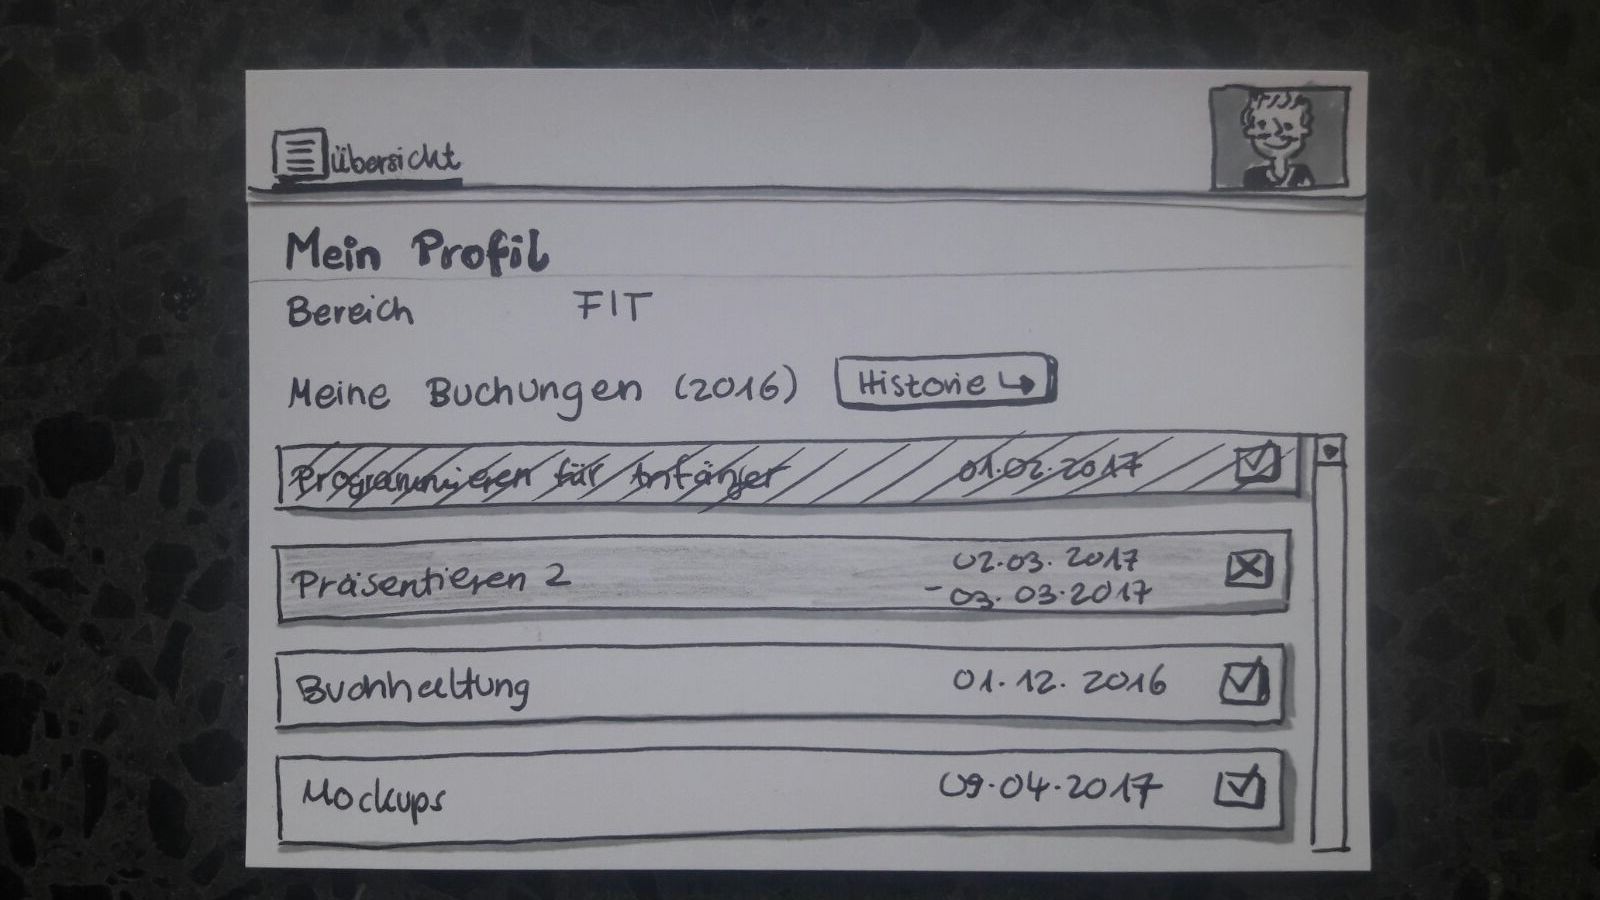 Übersicht
Mein Profil
Bereich FIT
Meine Buchungen (2016) Historie
Programmieren für Anfänger 01.02.2017
Präsentieren 2 02.03.2017
- 03.03.2017
Buchhaltung 01.12.2016
Mockups 09.04.2017